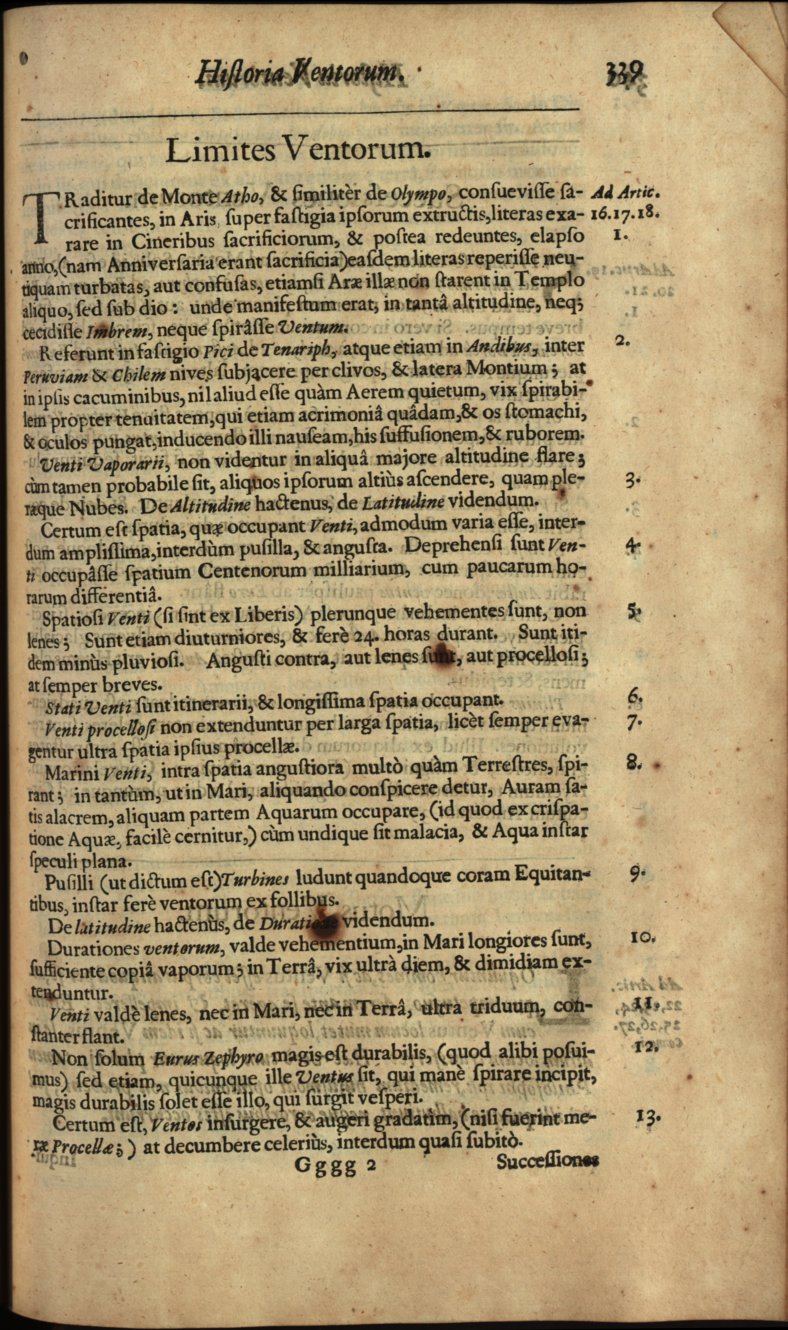 Hiſtoria Ventorum. 339
Limites Ventorum.
TRaditur de Monte Atho, & ſimilitèr de Olympo, conſueviſſe ſa- Ad Artic.
crificantes, in Aris ſuper faſtigia ipſorum extructis, literas exa- 16.17.18.
rare in Cineribus ſacrificiorum, & poſtea redeuntes, elapſo 1.
anno, (nam Anniverſaria erant ſacrificia) eaſdem literas reperiſſe neu-
tiquam turbatas, aut confuſas, etiamſi Aræ illæ non ſtarent in Templo
aliquo, ſed ſub dio: unde manifeſtum erat, in tantâ altitudine, neq;
cecidiſſe Imbrem, neque ſpirâſſe Ventum.
Referunt in faſtigio Pici de Tenariph, atque etiam in Andibus, inter 2.
Peruviam & Chilem nives ſubjacere per clivos, & latera Montium; at
in ipſis cacuminibus, nil aliud eſſe quàm Aerem quietum, vix ſpirabi-
lem propter tenuitatem, qui etiam acrimoniâ quâdam, & os ſtomachi,
& oculos pungat, inducendo illi nauſeam, his ſuffuſionem, & ruborem.
Venti Vaporarii, non videntur in aliquâ majore altitudine flare;
cùm tamen probabile ſit, aliquos ipſorum altiùs aſcendere, quam ple- 3.
ræque Nubes. De Altitudine hactenus, de Latitudine videndum.
Certum eſt ſpatia, quæ occupant Venti, admodum varia eſſe, inter-
dum ampliſſima, interdùm puſilla, & anguſta. Deprehenſi ſunt Ven- 4.
ti occupâſſe ſpatium Centenorum milliarium, cum paucarum ho-
rarum differentiâ.
Spatioſi Venti (ſi ſint ex Liberis) plerunque vehementes ſunt, non 5.
lenes; Sunt etiam diuturniores, & ferè 24. horas durant. Sunt iti-
dem minùs pluvioſi. Anguſti contra, aut lenes ſunt, aut procelloſi;
at ſemper breves.
Stati Venti ſunt itinerarii, & longiſſima ſpatia occupant. 6.
Venti procelloſi non extenduntur per larga ſpatia, licèt ſemper eva- 7.
gentur ultra ſpatia ipſius procellæ.
Marini Venti, intra ſpatia anguſtiora multò quàm Terreſtres, ſpi- 8.
rant; in tantùm, ut in Mari, aliquando conſpicere detur, Auram ſa-
tis alacrem, aliquam partem Aquarum occupare, (id quod ex criſpa-
tione Aquæ, facilè cernitur,) cùm undique ſit malacia, & Aqua inſtar
ſpeculi plana.
Puſilli (ut dictum eſt) Turbines ludunt quandoque coram Equitan- 9.
tibus, inſtar ferè ventorum ex follibus.
De latitudine hactenùs, de Duratione videndum.
Durationes ventorum, valde vehementium, in Mari longiores ſunt, 10.
ſufficiente copiâ vaporum; in Terrâ, vix ultrà diem, & dimidiam ex-
tenduntur.
Venti valdè lenes, nec in Mari, nec in Terrâ, ultra triduum, con- 11.
ſtanter flant.
Non ſolum Eurus Zephyro magis eſt durabilis, (quod alibi poſui- 12.
mus) ſed etiam, quicunque ille Ventus ſit, qui manè ſpirare incipit,
magis durabilis ſolet eſſe illo, qui ſurgit veſperi.
Certum eſt, Ventos inſurgere, & augeri gradatim, (niſi fuerint me- 13.
ræ Procellæ;) at decumbere celeriùs, interdum quaſi ſubitò.
Gggg 2 Succeſſiones